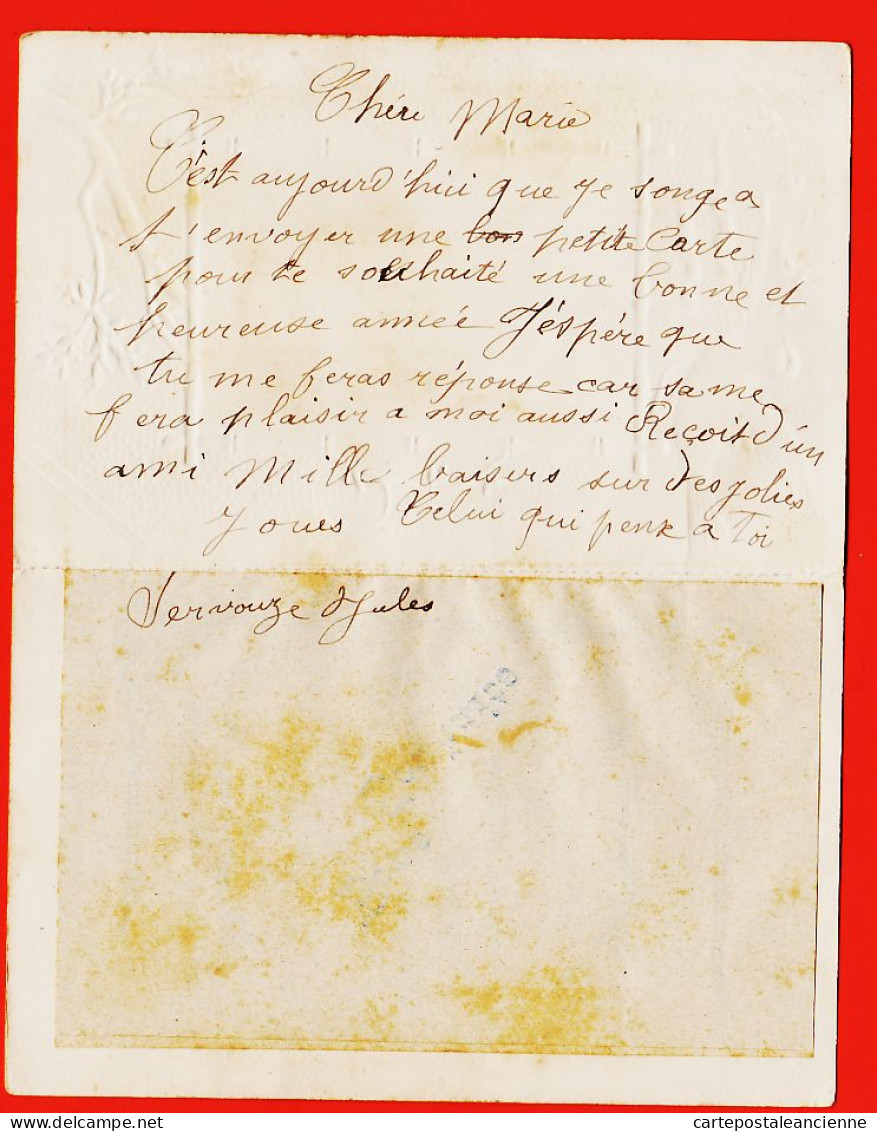 Chére Marie
C'est aujourd'hui que je songe a
t'envoyer une bon petite Carte
pour te souhaité une bonne et
heureuse année J'éspére que
tu me feras réponse car sa me
fera plaisir a moi aussi Reçoit d'un
ami Mille baisers sur des jolies
Joues Celui qui pense a Toi
Servouze Jules
delcampe.net
cartepostaleancienne